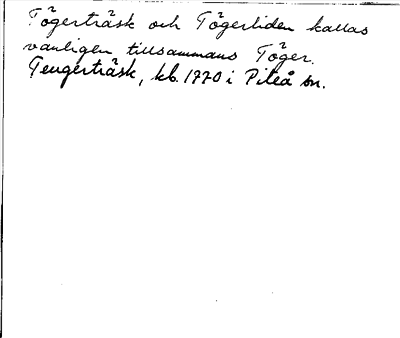 Tögerträsk och Tögerliden kallas
vanligen tillsammans Töger.
Teugerträsk, kb. 1770 i Piteå sn.